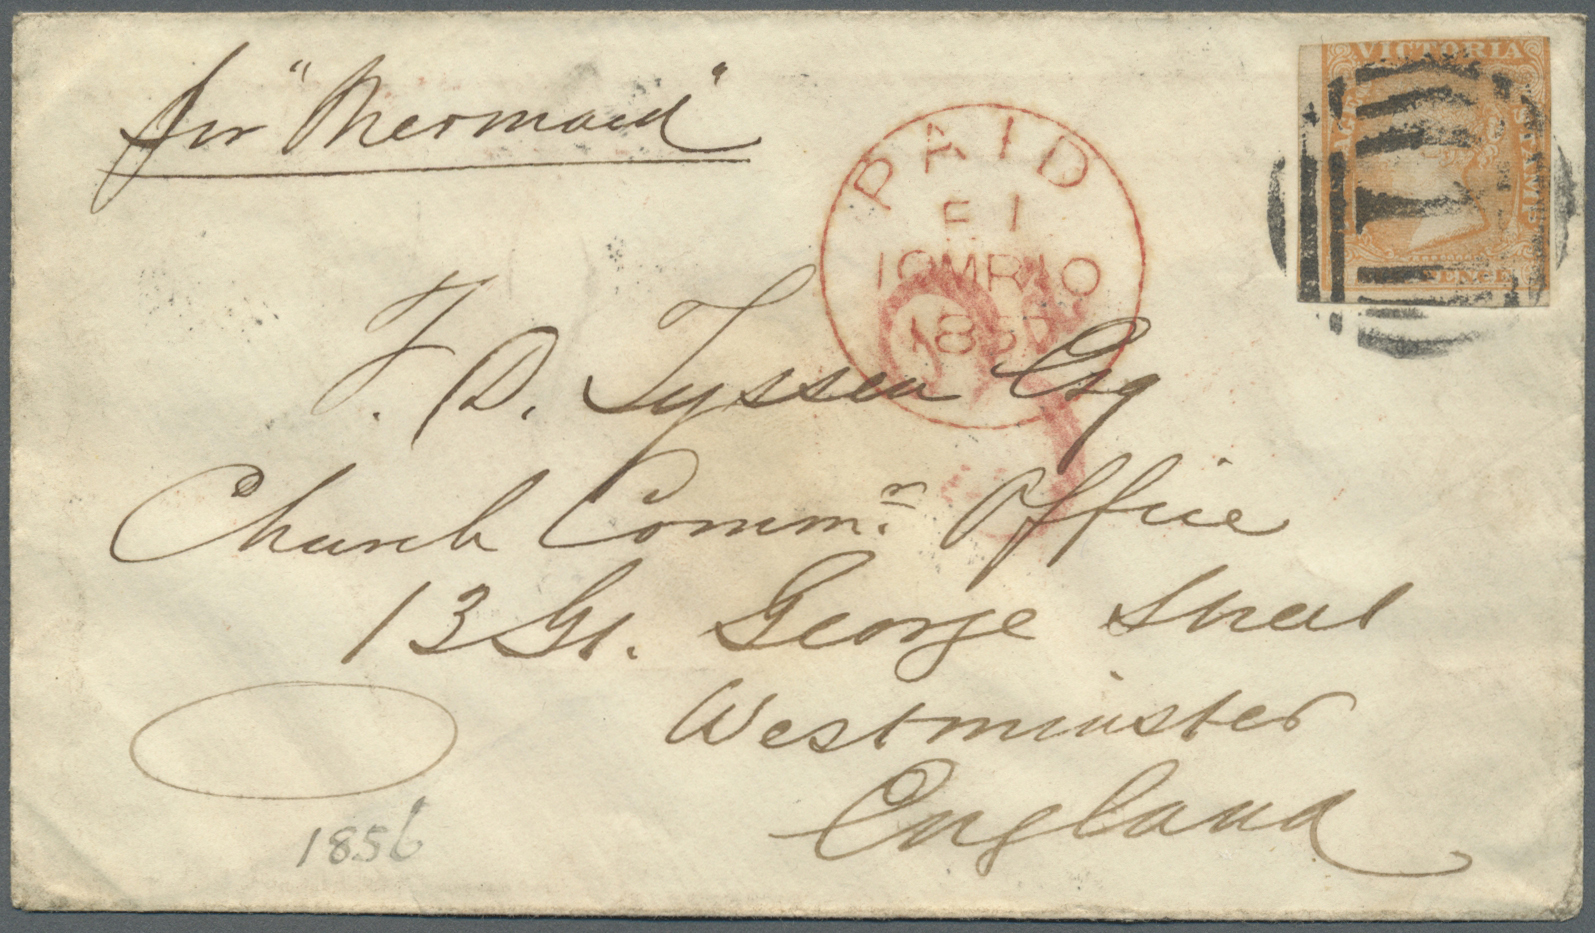 per "Mermaid"
VICTORIA
PENCE
PAID
F 1
10MR10
F. D. Tyssen Esq
Church Commrs. Office
13 Gt. George Street
Westminster
England
1856